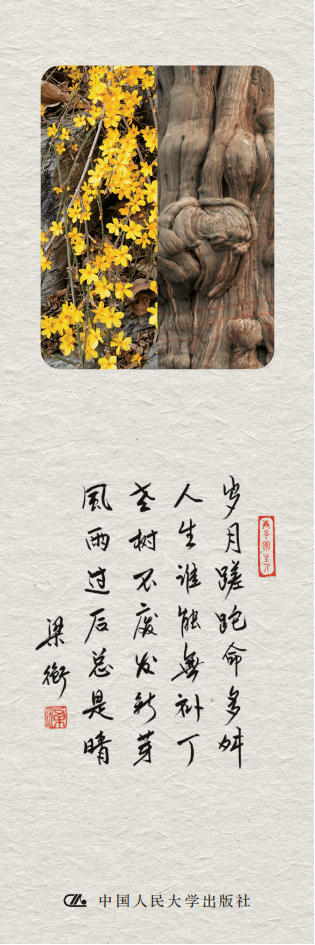 岁月蹉跎命多舛
人生谁能無补丁
老树不废发新芽
風雨过后总是晴
梁衡
中国人民大学出版社